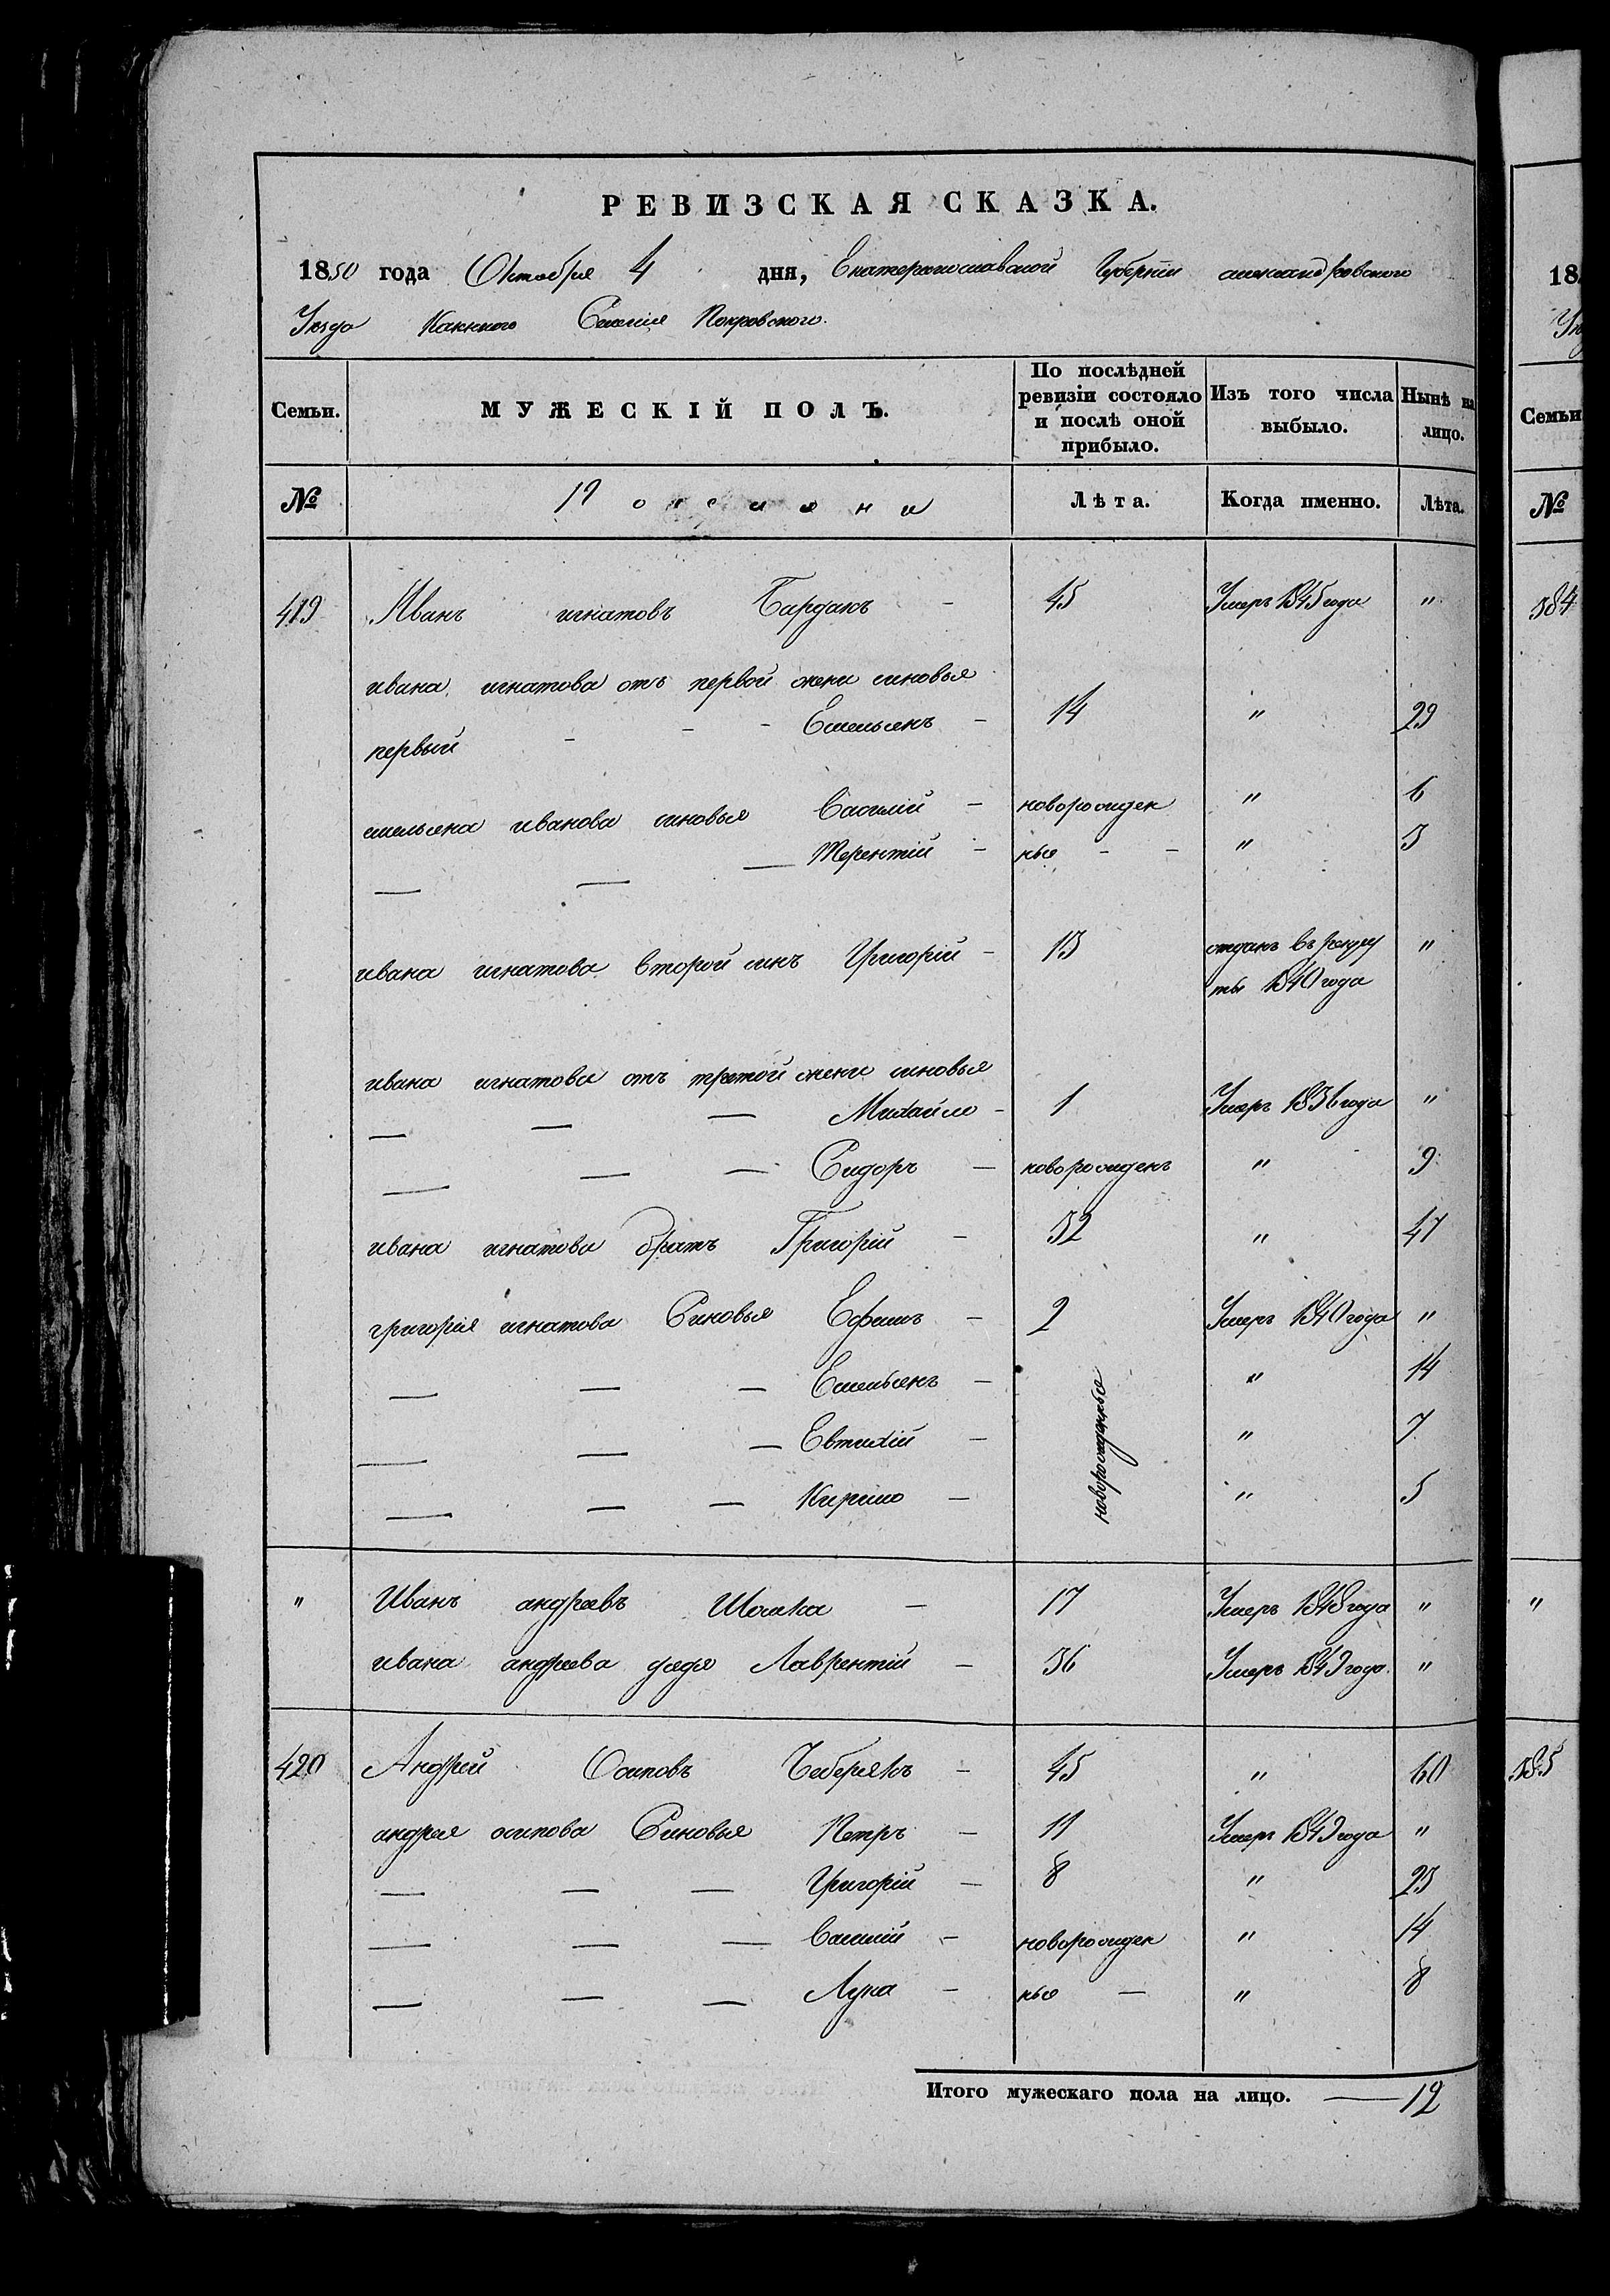 РЕВИЗСКАЯ СКАЗКА.
1850 года Октобря 4 дня, Екатеринославской Губерніи александровского
Уезда Каенного Селенія Покровского.
Семьи. МУЖЕСКІЙ ПОЛЪ. По послѣдней ревизіи состояло и послѣ оной прибыло. Изъ того числа выбыло. Нынѣ на лицо.
№ Поселяни Лѣта. Когда именно. Лѣта.
419 Иванъ игнатовъ Бардакъ - 45 Умеръ 1845 года "
ивана игнатова отъ первой жени синовья
первый - - - Емельянъ - 14 " 29
емельяна иванова синовья Василій - новорожден " 6
— — — Терентій - ные - - " 3
ивана игнатова второй синъ Григорій - 13 отданъ въ рекру "
ты 1840 года
ивана игнатова отъ третой жени синовья
— — — Михайло - 1 Умеръ 1836 года "
— — — Сидоръ - новорожденъ " 9
ивана игнатова братъ Григорій - 32 " 47
григорія игнатова Синовья Ефимъ - 2 Умеръ 1840 года "
— — — Емельянъ - новорожденные " 14
— — — Евтихій - " 7
— — — Кирило - " 5
" Иванъ андреевъ - 17 Умеръ 1848 года "
ивана андреева дядя Лаврентій - 36 Умеръ 1849 года "
420 Андрей Осиповъ Чеберякъ - 45 " 60
андрея осипова Синовья Петръ - 11 Умеръ 1849 года "
— — — Григорій - 8 " 23
— — — Василій - новорожден " 14
— — — Лука - ные - " 8
Итого мужескаго пола на лицо. — 12
18
Семьи
№
584
"
585